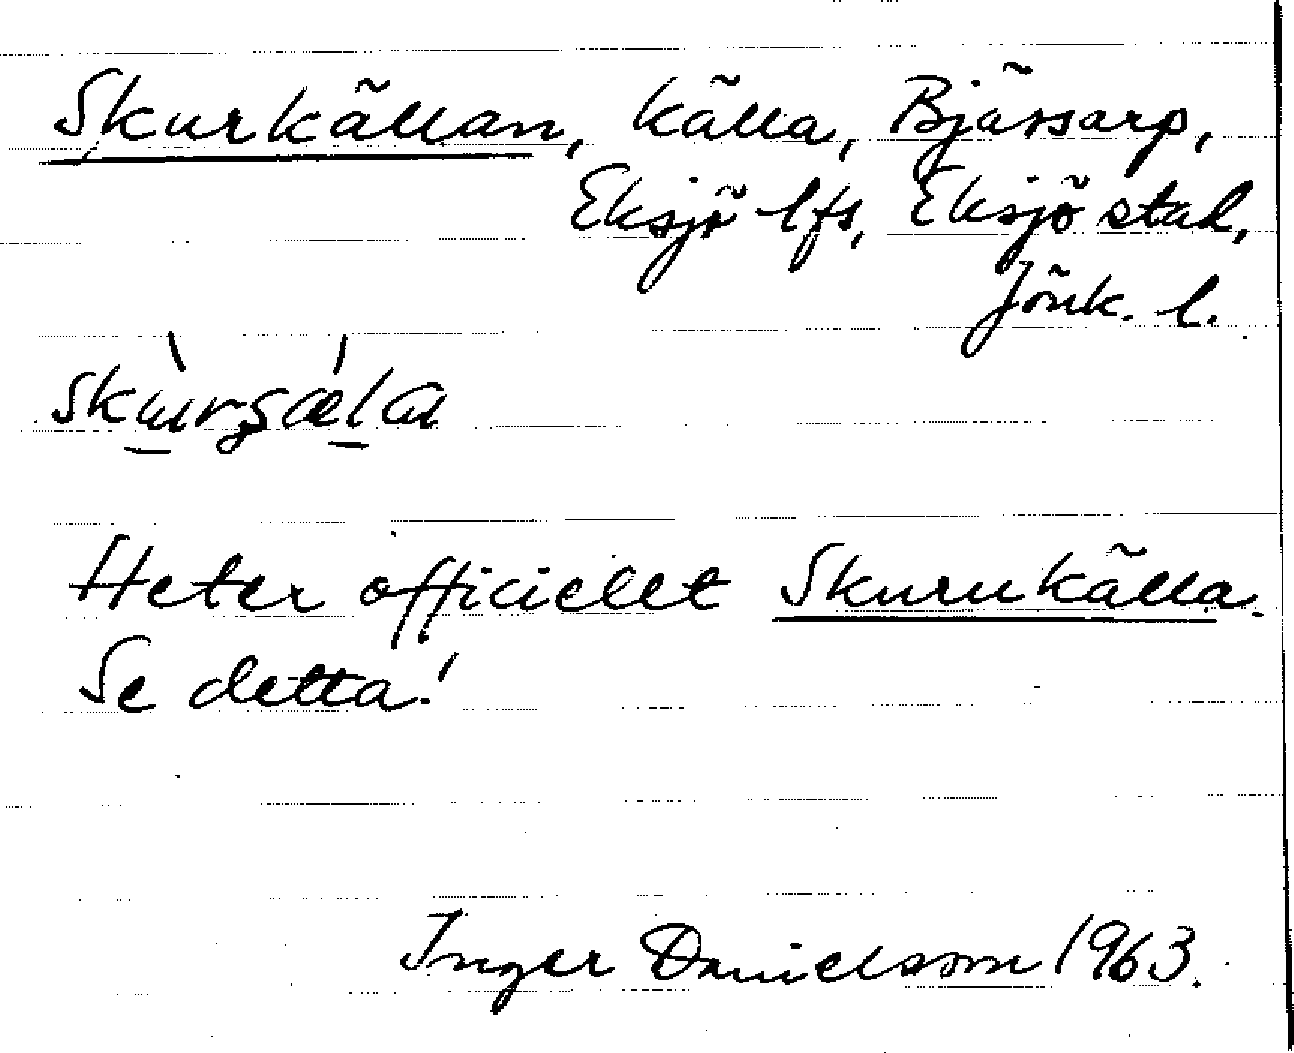 Skurkällan, källa, Bjässarp,
Eksjö lfs, Eksjö stad,
Jönk. l.
Heter officiellt Skurukälla.
Se detta!
Inger Danielsson 1963.